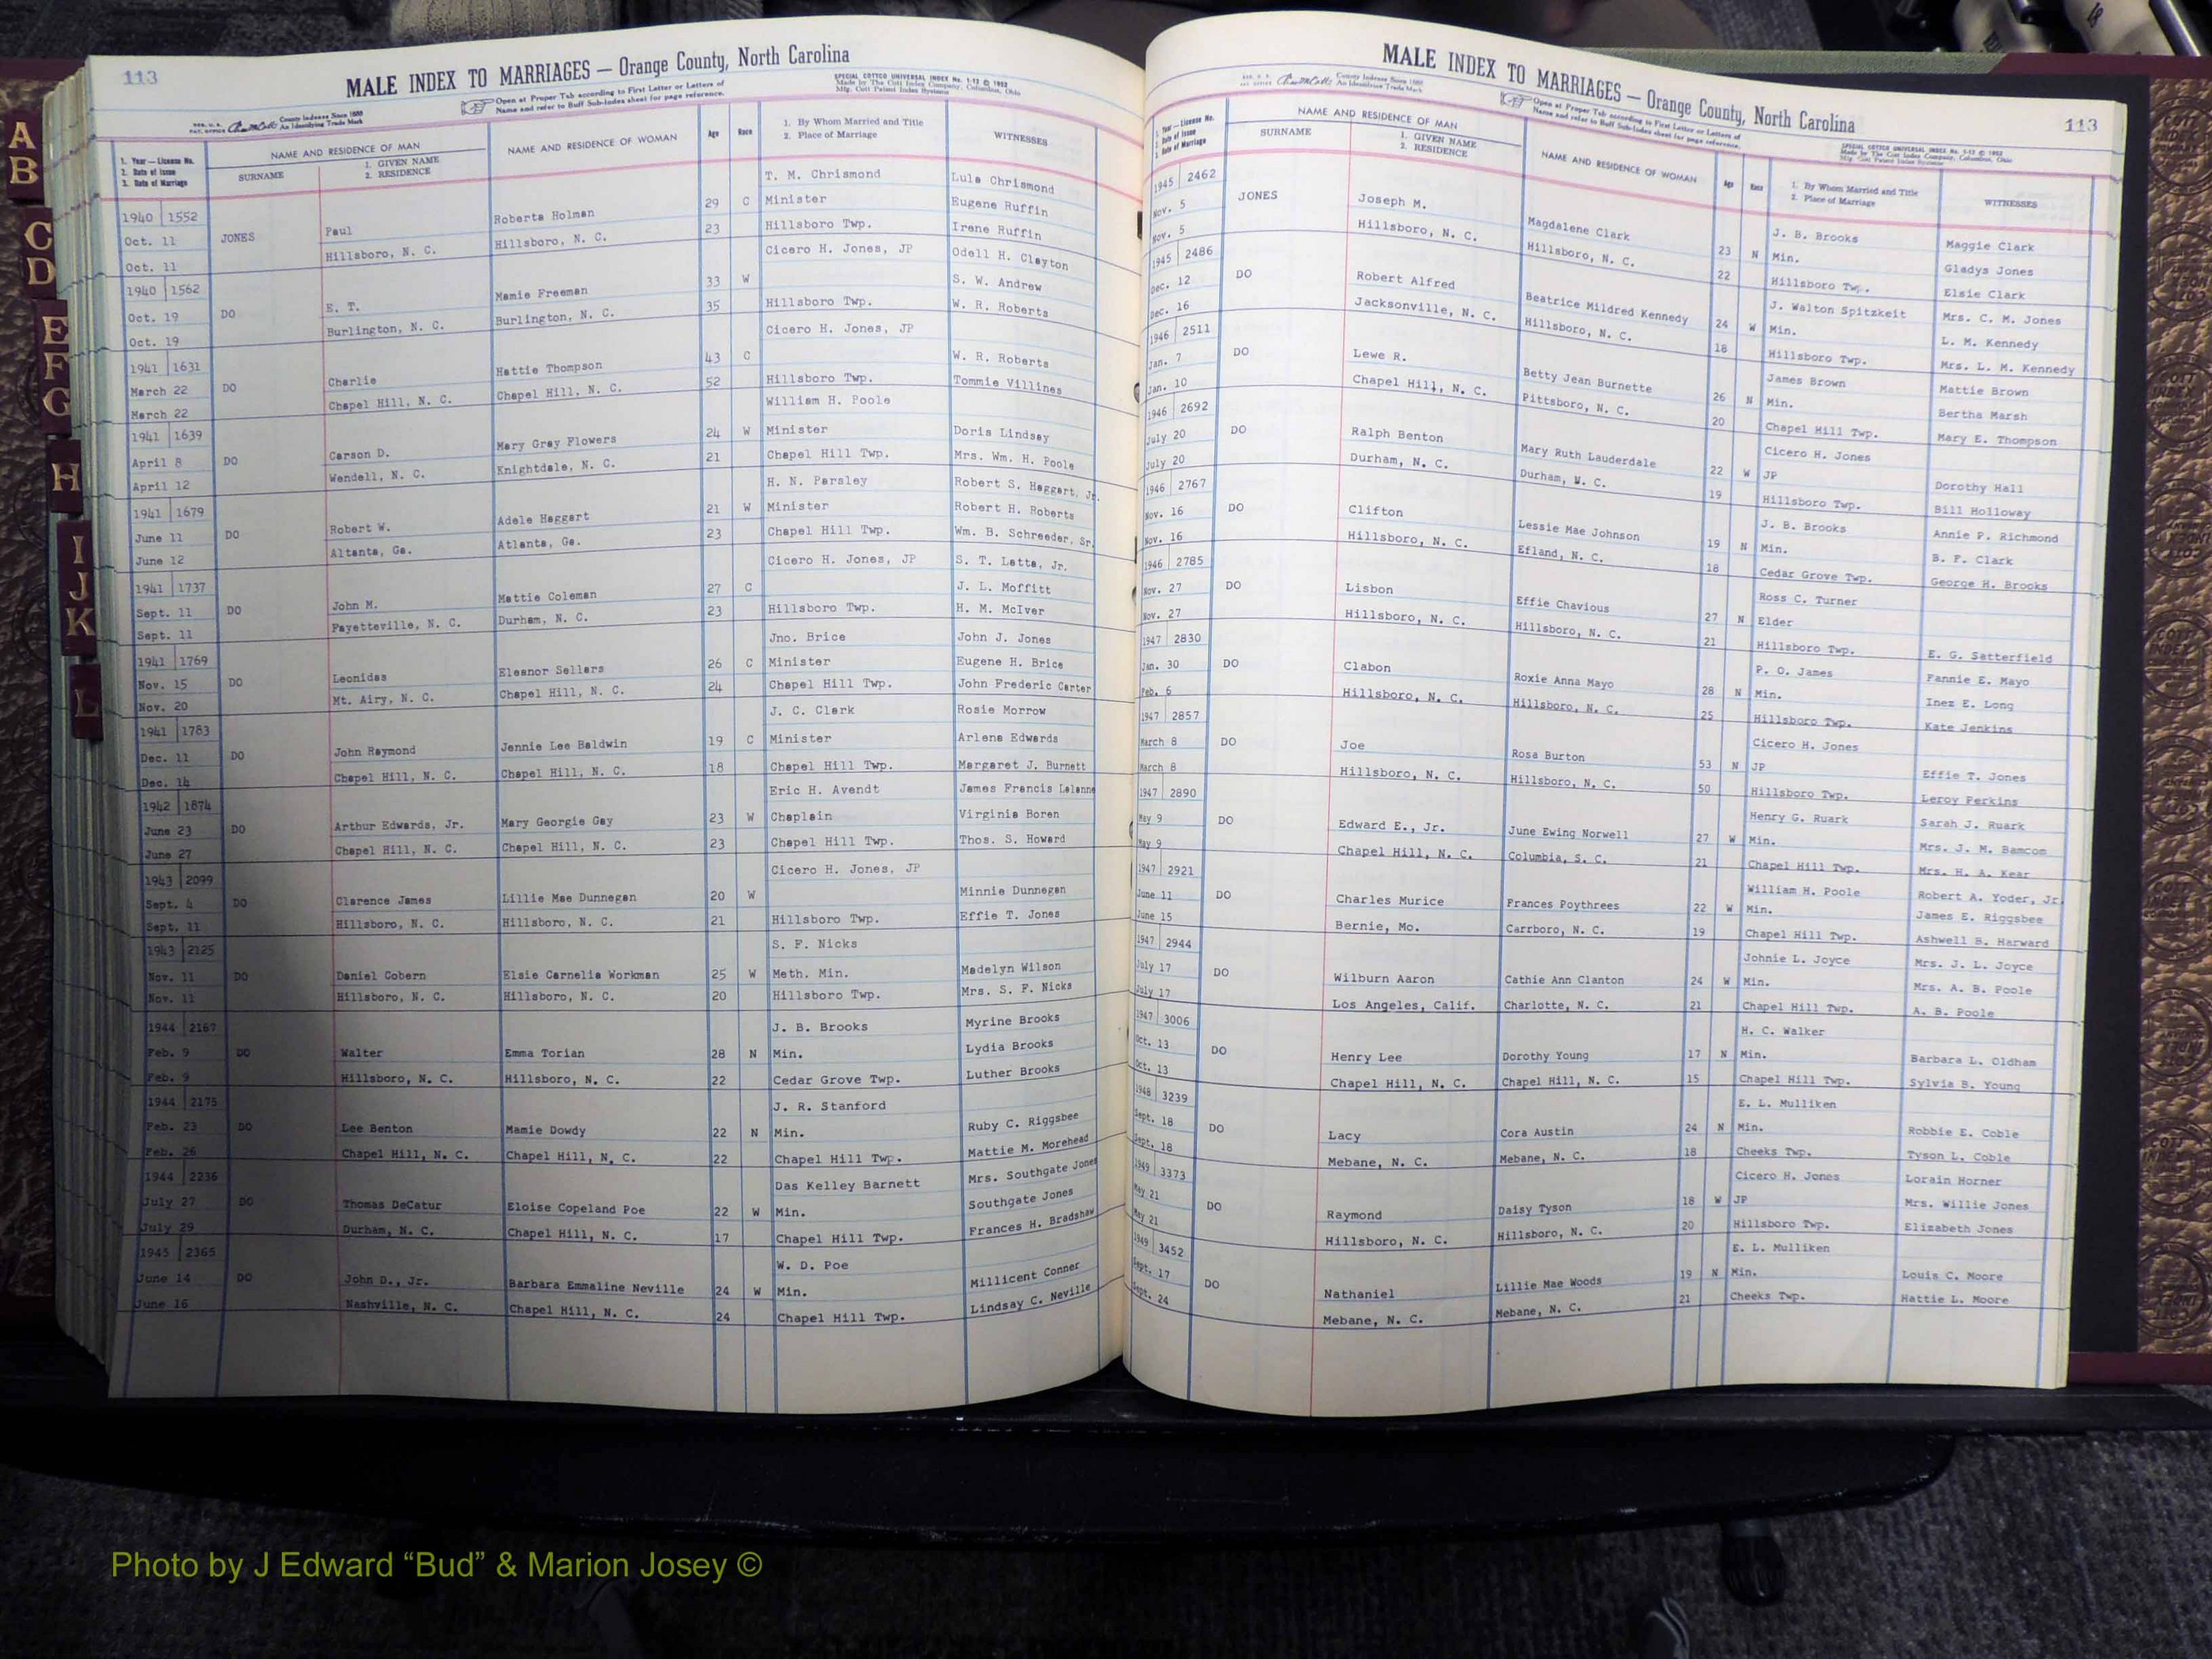 A
B
C
D
E
F
G
H
I
J
K
L
113
MALE INDEX TO MARRIAGES — Orange County, North Carolina
Open at Proper Tab according to First Letter or Letters of
Name and refer to Buff Sub-Index sheet for page reference.
SPECIAL COTTCO UNIVERSAL INDEX No. 1-12 © 1952
Made by The Cott Index Company, Columbus, Ohio
Mfg. Cott Patent Index Systems
County Indexes Since 1888
An Identifying Trade Mark
1. Year — License No.
2. Date of Issue
3. Date of Marriage
NAME AND RESIDENCE OF MAN
SURNAME
1. GIVEN NAME
2. RESIDENCE
NAME AND RESIDENCE OF WOMAN
Age
Race
1. By Whom Married and Title
2. Place of Marriage
WITNESSES
T. M. Chrismond Lula Chrismond
1940 1552 Roberta Holman 29 C Minister Eugene Ruffin
Oct. 11 JONES Paul Hillsboro, N. C. 23 Hillsboro Twp. Irene Ruffin
Oct. 11 Hillsboro, N. C. Cicero H. Jones, JP Odell H. Clayton
1940 1562 Mamie Freeman 33 W S. W. Andrew
Oct. 19 DO E. T. Burlington, N. C. 35 Hillsboro Twp. W. R. Roberts
Oct. 19 Burlington, N. C. Cicero H. Jones, JP
1941 1631 Hattie Thompson 43 C W. R. Roberts
March 22 DO Charlie Chapel Hill, N. C. 52 Hillsboro Twp. Tommie Villines
March 22 Chapel Hill, N. C. William H. Poole
1941 1639 Mary Gray Flowers 24 W Minister Doris Lindsay
April 8 DO Carson D. Knightdale, N. C. 21 Chapel Hill Twp. Mrs. Wm. H. Poole
April 12 Wendell, N. C. H. N. Parsley Robert S. Haggart, Jr.
1941 1679 Adele Haggart 21 W Minister Robert H. Roberts
June 11 DO Robert W. Atlanta, Ga. 23 Chapel Hill Twp. Wm. B. Schreeder, Sr.
June 12 Altanta, Ga. Cicero H. Jones, JP S. T. Latta, Jr.
1941 1737 Mattie Coleman 27 C J. L. Moffitt
Sept. 11 DO John M. Durham, N. C. 23 Hillsboro Twp. H. M. McIver
Sept. 11 Fayetteville, N. C. Jno. Brice John J. Jones
1941 1769 Eleanor Sellars 26 C Minister Eugene H. Brice
Nov. 15 DO Leonidas Chapel Hill, N. C. 24 Chapel Hill Twp. John Frederic Carter
Nov. 20 Mt. Airy, N. C. J. C. Clark Rosie Morrow
1941 1783 Jennie Lee Baldwin 19 C Minister Arlena Edwards
Dec. 11 DO John Raymond Chapel Hill, N. C. 18 Chapel Hill Twp. Margaret J. Burnett
Dec. 14 Chapel Hill, N. C. Eric H. Avendt James Francis Lalanne
1942 1874 Mary Georgie Gay 23 W Chaplain Virginia Boren
June 23 DO Arthur Edwards, Jr. Chapel Hill, N. C. 23 Chapel Hill Twp. Thos. S. Howard
June 27 Chapel Hill, N. C. Cicero H. Jones, JP
1943 2099 Lillie Mae Dunnegan 20 W Minnie Dunnegan
Sept. 4 DO Clarence James Hillsboro, N. C. 21 Hillsboro Twp. Effie T. Jones
Sept. 11 Hillsboro, N. C.
1943 2125 S. F. Nicks
Nov. 11 DO Daniel Cobern Elsie Carnelia Workman 25 W Meth. Min. Madelyn Wilson
Nov. 11 Hillsboro, N. C. Hillsboro, N. C. 20 Hillsboro Twp. Mrs. S. F. Nicks
1944 2167 J. B. Brooks Myrine Brooks
Feb. 9 DO Walter Emma Torian 28 N Min. Lydia Brooks
Feb. 9 Hillsboro, N. C. Hillsboro, N. C. 22 Cedar Grove Twp. Luther Brooks
1944 2175 J. R. Stanford
Feb. 23 DO Lee Benton Mamie Dowdy 22 N Min. Ruby C. Riggsbee
Feb. 26 Chapel Hill, N. C. Chapel Hill, N. C. 22 Chapel Hill Twp. Mattie M. Morehead
1944 2236 Das Kelley Barnett Mrs. Southgate Jones
July 27 DO Thomas DeCatur Eloise Copeland Poe 22 W Min. Southgate Jones
July 29 Durham, N. C. Chapel Hill, N. C. 17 Chapel Hill Twp. Frances H. Bradshaw
1945 2365 W. D. Poe
June 14 DO John D., Jr. Barbara Emmaline Neville 24 W Min. Millicent Conner
June 16 Nashville, N. C. Chapel Hill, N. C. 24 Chapel Hill Twp. Lindsay C. Neville
MALE INDEX TO MARRIAGES — Orange County, North Carolina
113
County Indexes Since 1888
An Identifying Trade Mark
Open at Proper Tab according to First Letter or Letters of
Name and refer to Buff Sub-Index sheet for page reference.
SPECIAL COTTCO UNIVERSAL INDEX No. 1-12 © 1952
Made by The Cott Index Company, Columbus, Ohio
Mfg. Cott Patent Index Systems
1. Year — License No.
2. Date of Issue
3. Date of Marriage
NAME AND RESIDENCE OF MAN
SURNAME
1. GIVEN NAME
2. RESIDENCE
NAME AND RESIDENCE OF WOMAN
Age
Race
1. By Whom Married and Title
2. Place of Marriage
WITNESSES
1945 2462 J. B. Brooks Maggie Clark
Nov. 5 JONES Joseph M. Magdalene Clark 23 N Min. Gladys Jones
Nov. 5 Hillsboro, N. C. Hillsboro, N. C. 22 Hillsboro Twp. Elsie Clark
1945 2486 J. Walton Spitzkeit Mrs. C. M. Jones
Dec. 12 DO Robert Alfred Beatrice Mildred Kennedy 24 W Min. L. M. Kennedy
Dec. 16 Jacksonville, N. C. Hillsboro, N. C. 18 Hillsboro Twp. Mrs. L. M. Kennedy
1946 2511 James Brown Mattie Brown
Jan. 7 DO Lewe R. Betty Jean Burnette 26 N Min. Bertha Marsh
Jan. 10 Chapel Hill, N. C. Pittsboro, N. C. 20 Chapel Hill Twp. Mary E. Thompson
1946 2692 Cicero H. Jones
July 20 DO Ralph Benton Mary Ruth Lauderdale 22 W JP Dorothy Hall
July 20 Durham, N. C. Durham, N. C. 19 Hillsboro Twp. Bill Holloway
1946 2767 J. B. Brooks Annie P. Richmond
Nov. 16 DO Clifton Lessie Mae Johnson 19 N Min. B. F. Clark
Nov. 16 Hillsboro, N. C. Efland, N. C. 18 Cedar Grove Twp. George H. Brooks
1946 2785 Ross C. Turner
Nov. 27 DO Lisbon Effie Chavious 27 N Elder
Nov. 27 Hillsboro, N. C. Hillsboro, N. C. 21 Hillsboro Twp. E. G. Satterfield
1947 2830 P. O. James Fannie E. Mayo
Jan. 30 DO Clabon Roxie Anna Mayo 28 N Min. Inez E. Long
Feb. 6 Hillsboro, N. C. Hillsboro, N. C. 25 Hillsboro Twp. Kate Jenkins
1947 2857 Cicero H. Jones
March 8 DO Joe Rosa Burton 53 N JP Effie T. Jones
March 8 Hillsboro, N. C. Hillsboro, N. C. 50 Hillsboro Twp. Leroy Perkins
1947 2890 Henry G. Ruark Sarah J. Ruark
May 9 DO Edward E., Jr. June Ewing Norwell 27 W Min. Mrs. J. M. Bamcom
May 9 Chapel Hill, N. C. Columbia, S. C. 21 Chapel Hill Twp. Mrs. H. A. Kear
1947 2921 William H. Poole Robert A. Yoder, Jr.
June 11 DO Charles Murice Frances Poythrees 22 W Min. James E. Riggsbee
June 15 Bernie, Mo. Carrboro, N. C. 19 Chapel Hill Twp. Ashwell B. Harward
1947 2944 Johnie L. Joyce Mrs. J. L. Joyce
July 17 DO Wilburn Aaron Cathie Ann Clanton 24 W Min. Mrs. A. B. Poole
July 17 Los Angeles, Calif. Charlotte, N. C. 21 Chapel Hill Twp. A. B. Poole
1947 3006 H. C. Walker
Oct. 13 DO Henry Lee Dorothy Young 17 N Min. Barbara L. Oldham
Oct. 13 Chapel Hill, N. C. Chapel Hill, N. C. 15 Chapel Hill Twp. Sylvia B. Young
1948 3239 E. L. Mulliken
Sept. 18 DO Lacy Cora Austin 24 N Min. Robbie E. Coble
Sept. 18 Mebane, N. C. Mebane, N. C. 18 Cheeks Twp. Tyson L. Coble
1949 3373 Cicero H. Jones Lorain Horner
May 21 DO Raymond Daisy Tyson 18 W JP Mrs. Willie Jones
May 21 Hillsboro, N. C. Hillsboro, N. C. 20 Hillsboro Twp. Elizabeth Jones
1949 3452 E. L. Mulliken
Sept. 17 DO Nathaniel Lillie Mae Woods 19 N Min. Louis C. Moore
Sept. 24 Mebane, N. C. Mebane, N. C. 21 Cheeks Twp. Hattie L. Moore
Photo by J Edward “Bud” & Marion Josey ©